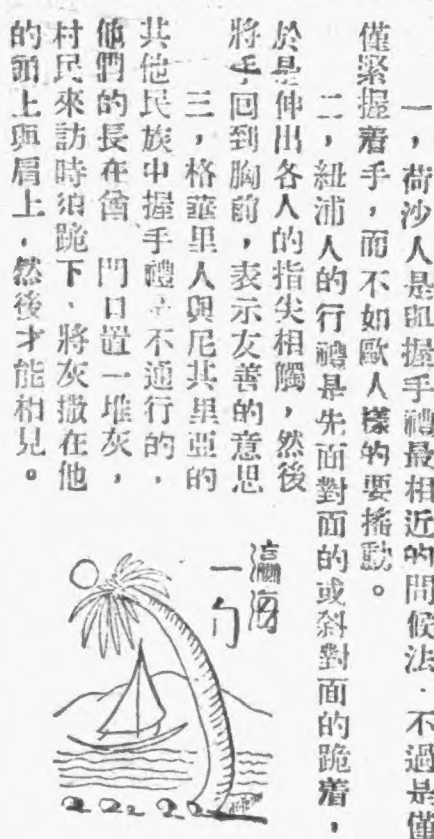 一，荷沙人是與握手禮最相近的問候法．不過是僅
僅緊握着手，而不如歐人樣的要搖動。
二，紐浦人的行禮是先面對面的或斜對面的跪着，
於是伸出各人的指尖相觸，然後
將手回到胸前，表示友善的意思
三，格華里人與尼其里亞的
其他民族中握手禮是不通行的．
他們的長在酋 門口置一堆灰，
村民來訪時須跪下、將灰撒在他
的頭上與肩上．然後才能相見。
瀛海
一勺